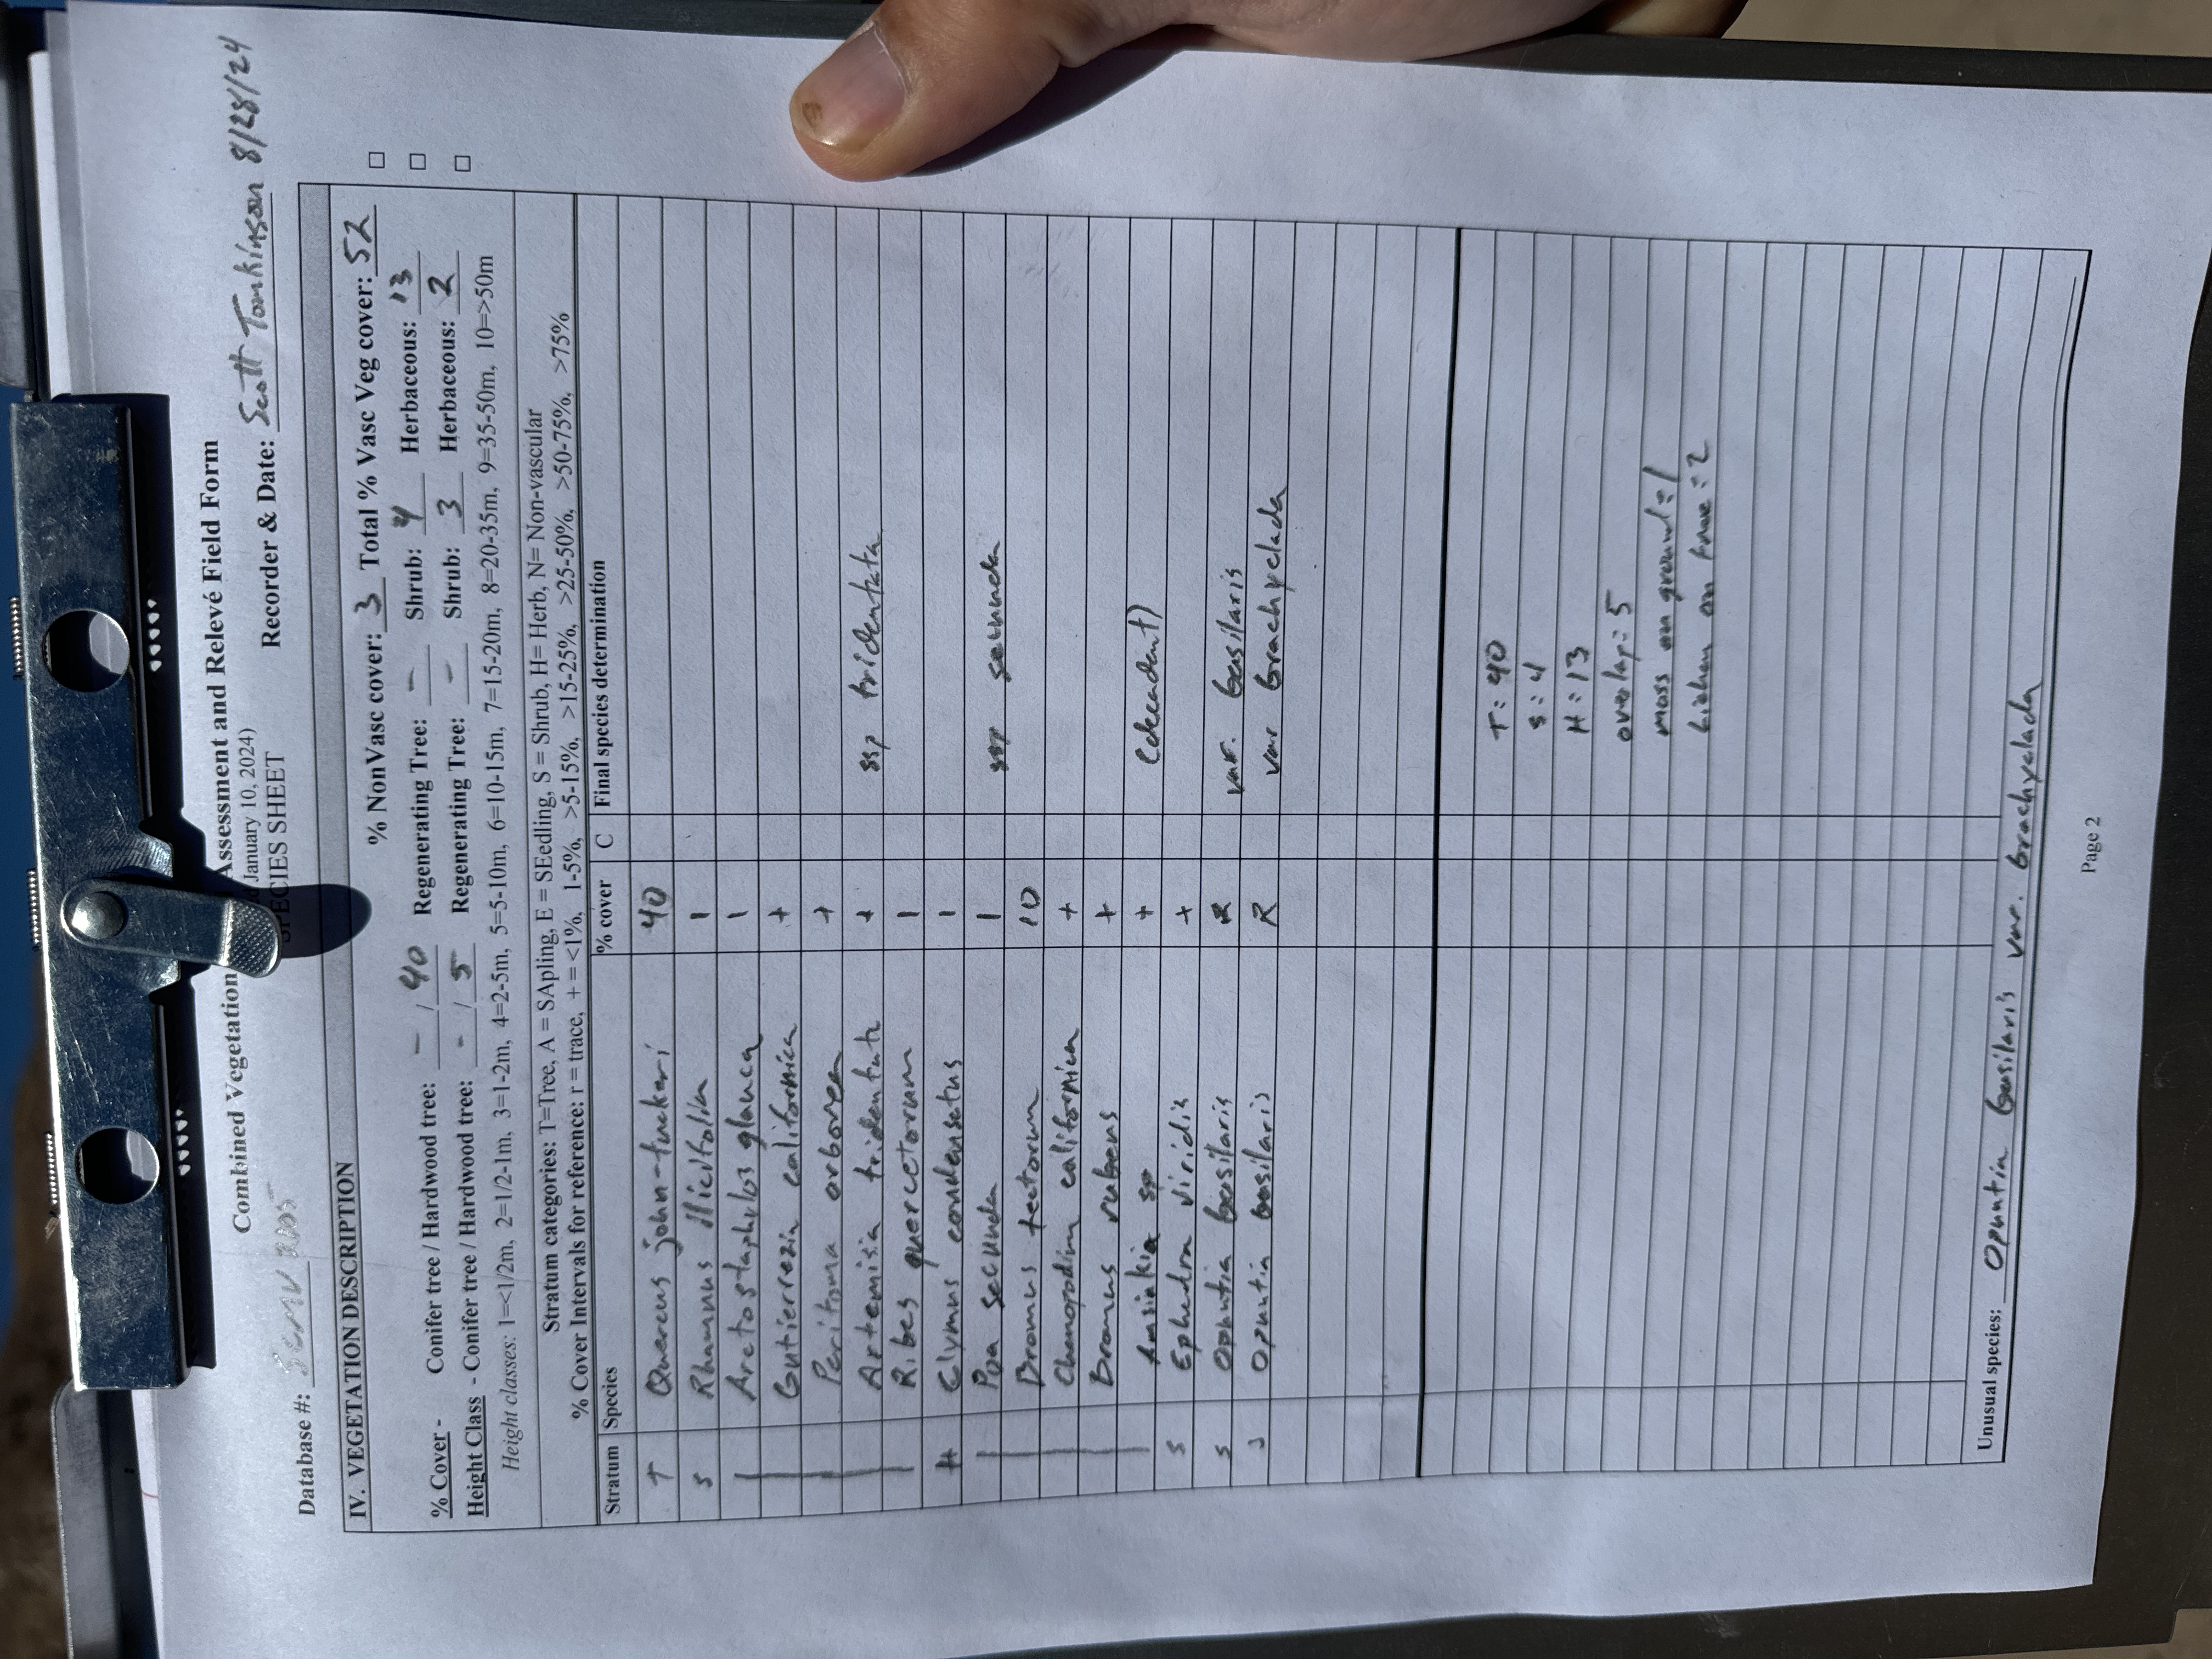 Combined Vegetation Assessment and Relevé Field Form
January 10, 2024)
SPECIES SHEET
Database #: Recorder & Date: Scott Tomkinson 8/28/24
IV. VEGETATION DESCRIPTION
% NonVasc cover: 3 Total % Vasc Veg cover: 52
% Cover - Conifer tree / Hardwood tree: - / 40 Regenerating Tree: - Shrub: 4 Herbaceous: 13
Height Class - Conifer tree / Hardwood tree: - / 5 Regenerating Tree: - Shrub: 3 Herbaceous: 2
Height classes: 1=<1/2m, 2=1/2-1m, 3=1-2m, 4=2-5m, 5=5-10m, 6=10-15m, 7=15-20m, 8=20-35m, 9=35-50m, 10=>50m
Stratum categories: T=Tree, A = SApling, E = SEedling, S = Shrub, H= Herb, N= Non-vascular
% Cover Intervals for reference: r = trace, + = <1%, 1-5%, >5-15%, >15-25%, >25-50%, >50-75%, >75%
Stratum Species % cover C Final species determination
T Quercus john-tuckeri 40
S Rhamnus ilicifolia 1
Arctostaphylos glauca 1
Gutierrezia californica +
Peritoma arborea +
Artemisia tridentata + ssp tridentata
Ribes quercetorum 1
H Elymus condensatus 1
Poa secunda 1 ssp secunda
Bromus tectorum 10
Chenopodium californica +
Bromus rubens +
Amsinkia sp + (decadent)
S Ephedra viridis +
S Opuntia basilaris R var. basilaris
S Opuntia basilaris R var brachyclada
T: 40
S: 4
H: 13
overlap: 5
moss on ground: 1
Lichen on tree: 2
Unusual species: Opuntia basilaris var. brachyclada
Page 2